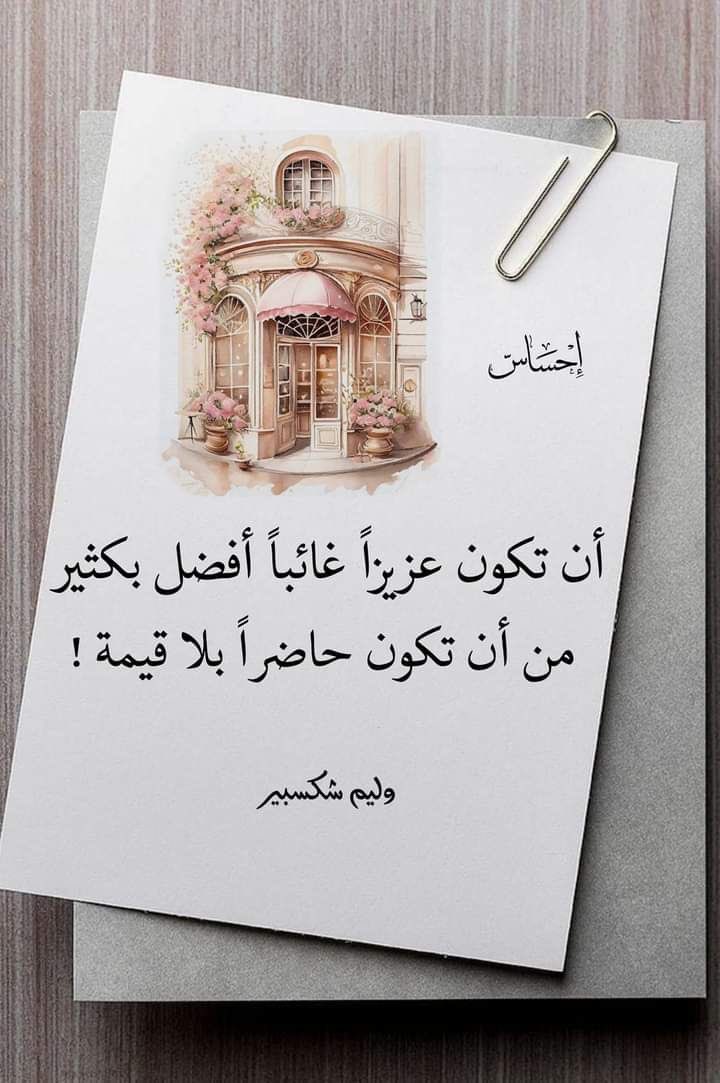 إِحْسَاسّ
أن تكون عزيزاً غائباً أفضل بكثير
من أن تكون حاضراً بلا قيمة !
وليم شكسبير